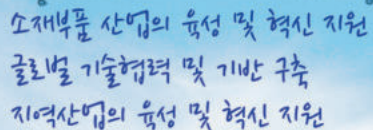 소재부품 산업의 육성 및 혁신 지원
글로벌 기술협력 및 기반 구축
지역산업의 육성 및 혁신 지원